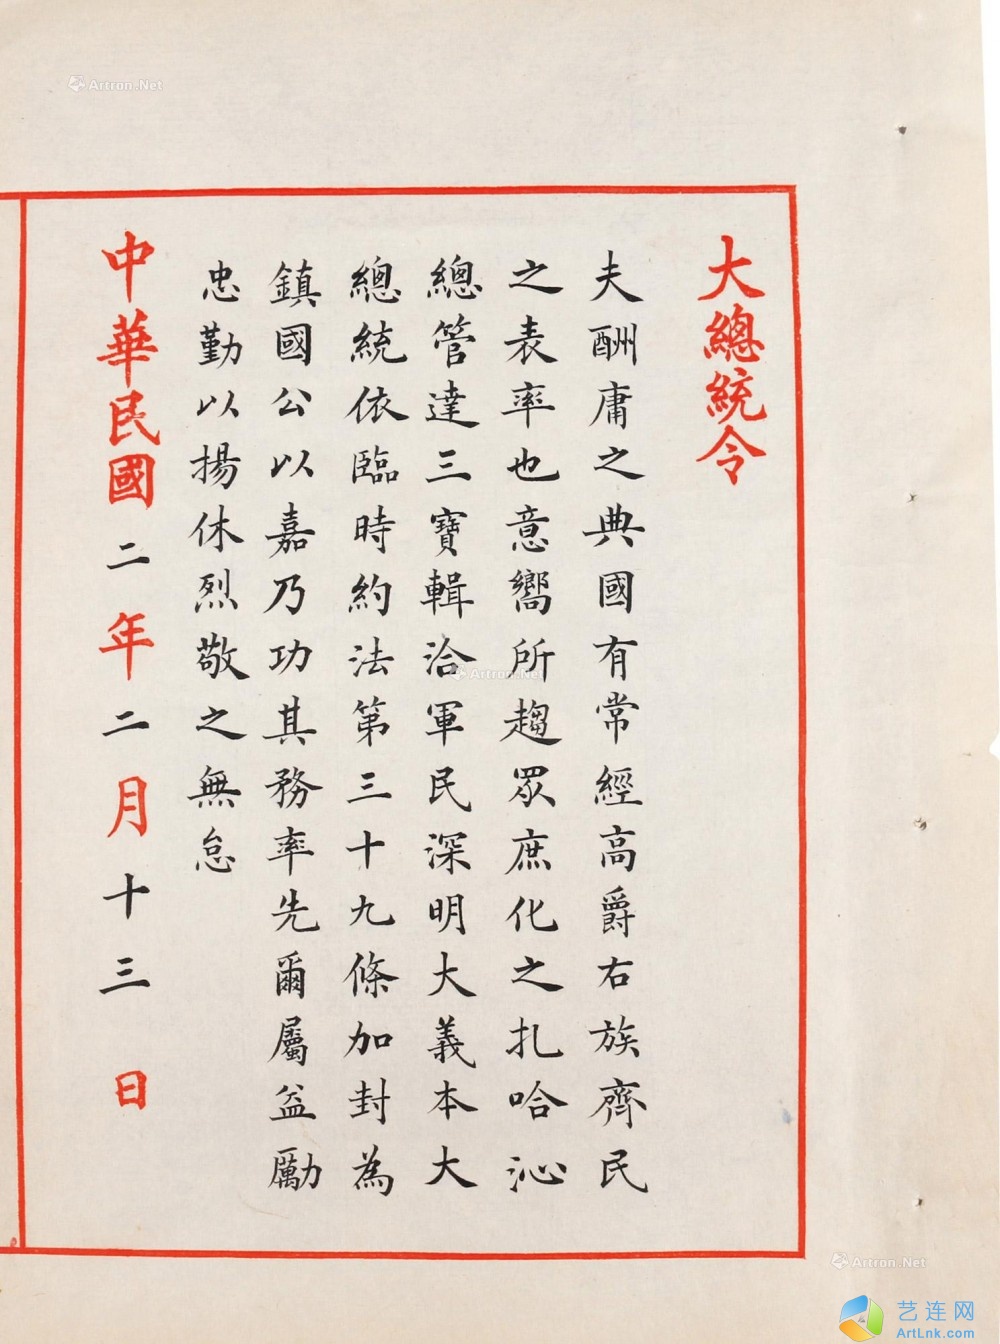 大總統令
夫酬庸之典國有常經高爵右族齊民
之表率也意嚮所趨眾庶化之扎哈沁
總管達三寶輯洽軍民深明大義本大
總統依臨時約法第三十九條加封為
鎮國公以嘉乃功其務率先爾屬益勵
忠勤以揚休烈敬之無怠
中華民國二年二月十三日
Artron.Net
Artron.Net
Artron.Net
艺连网
ArtLnk.com